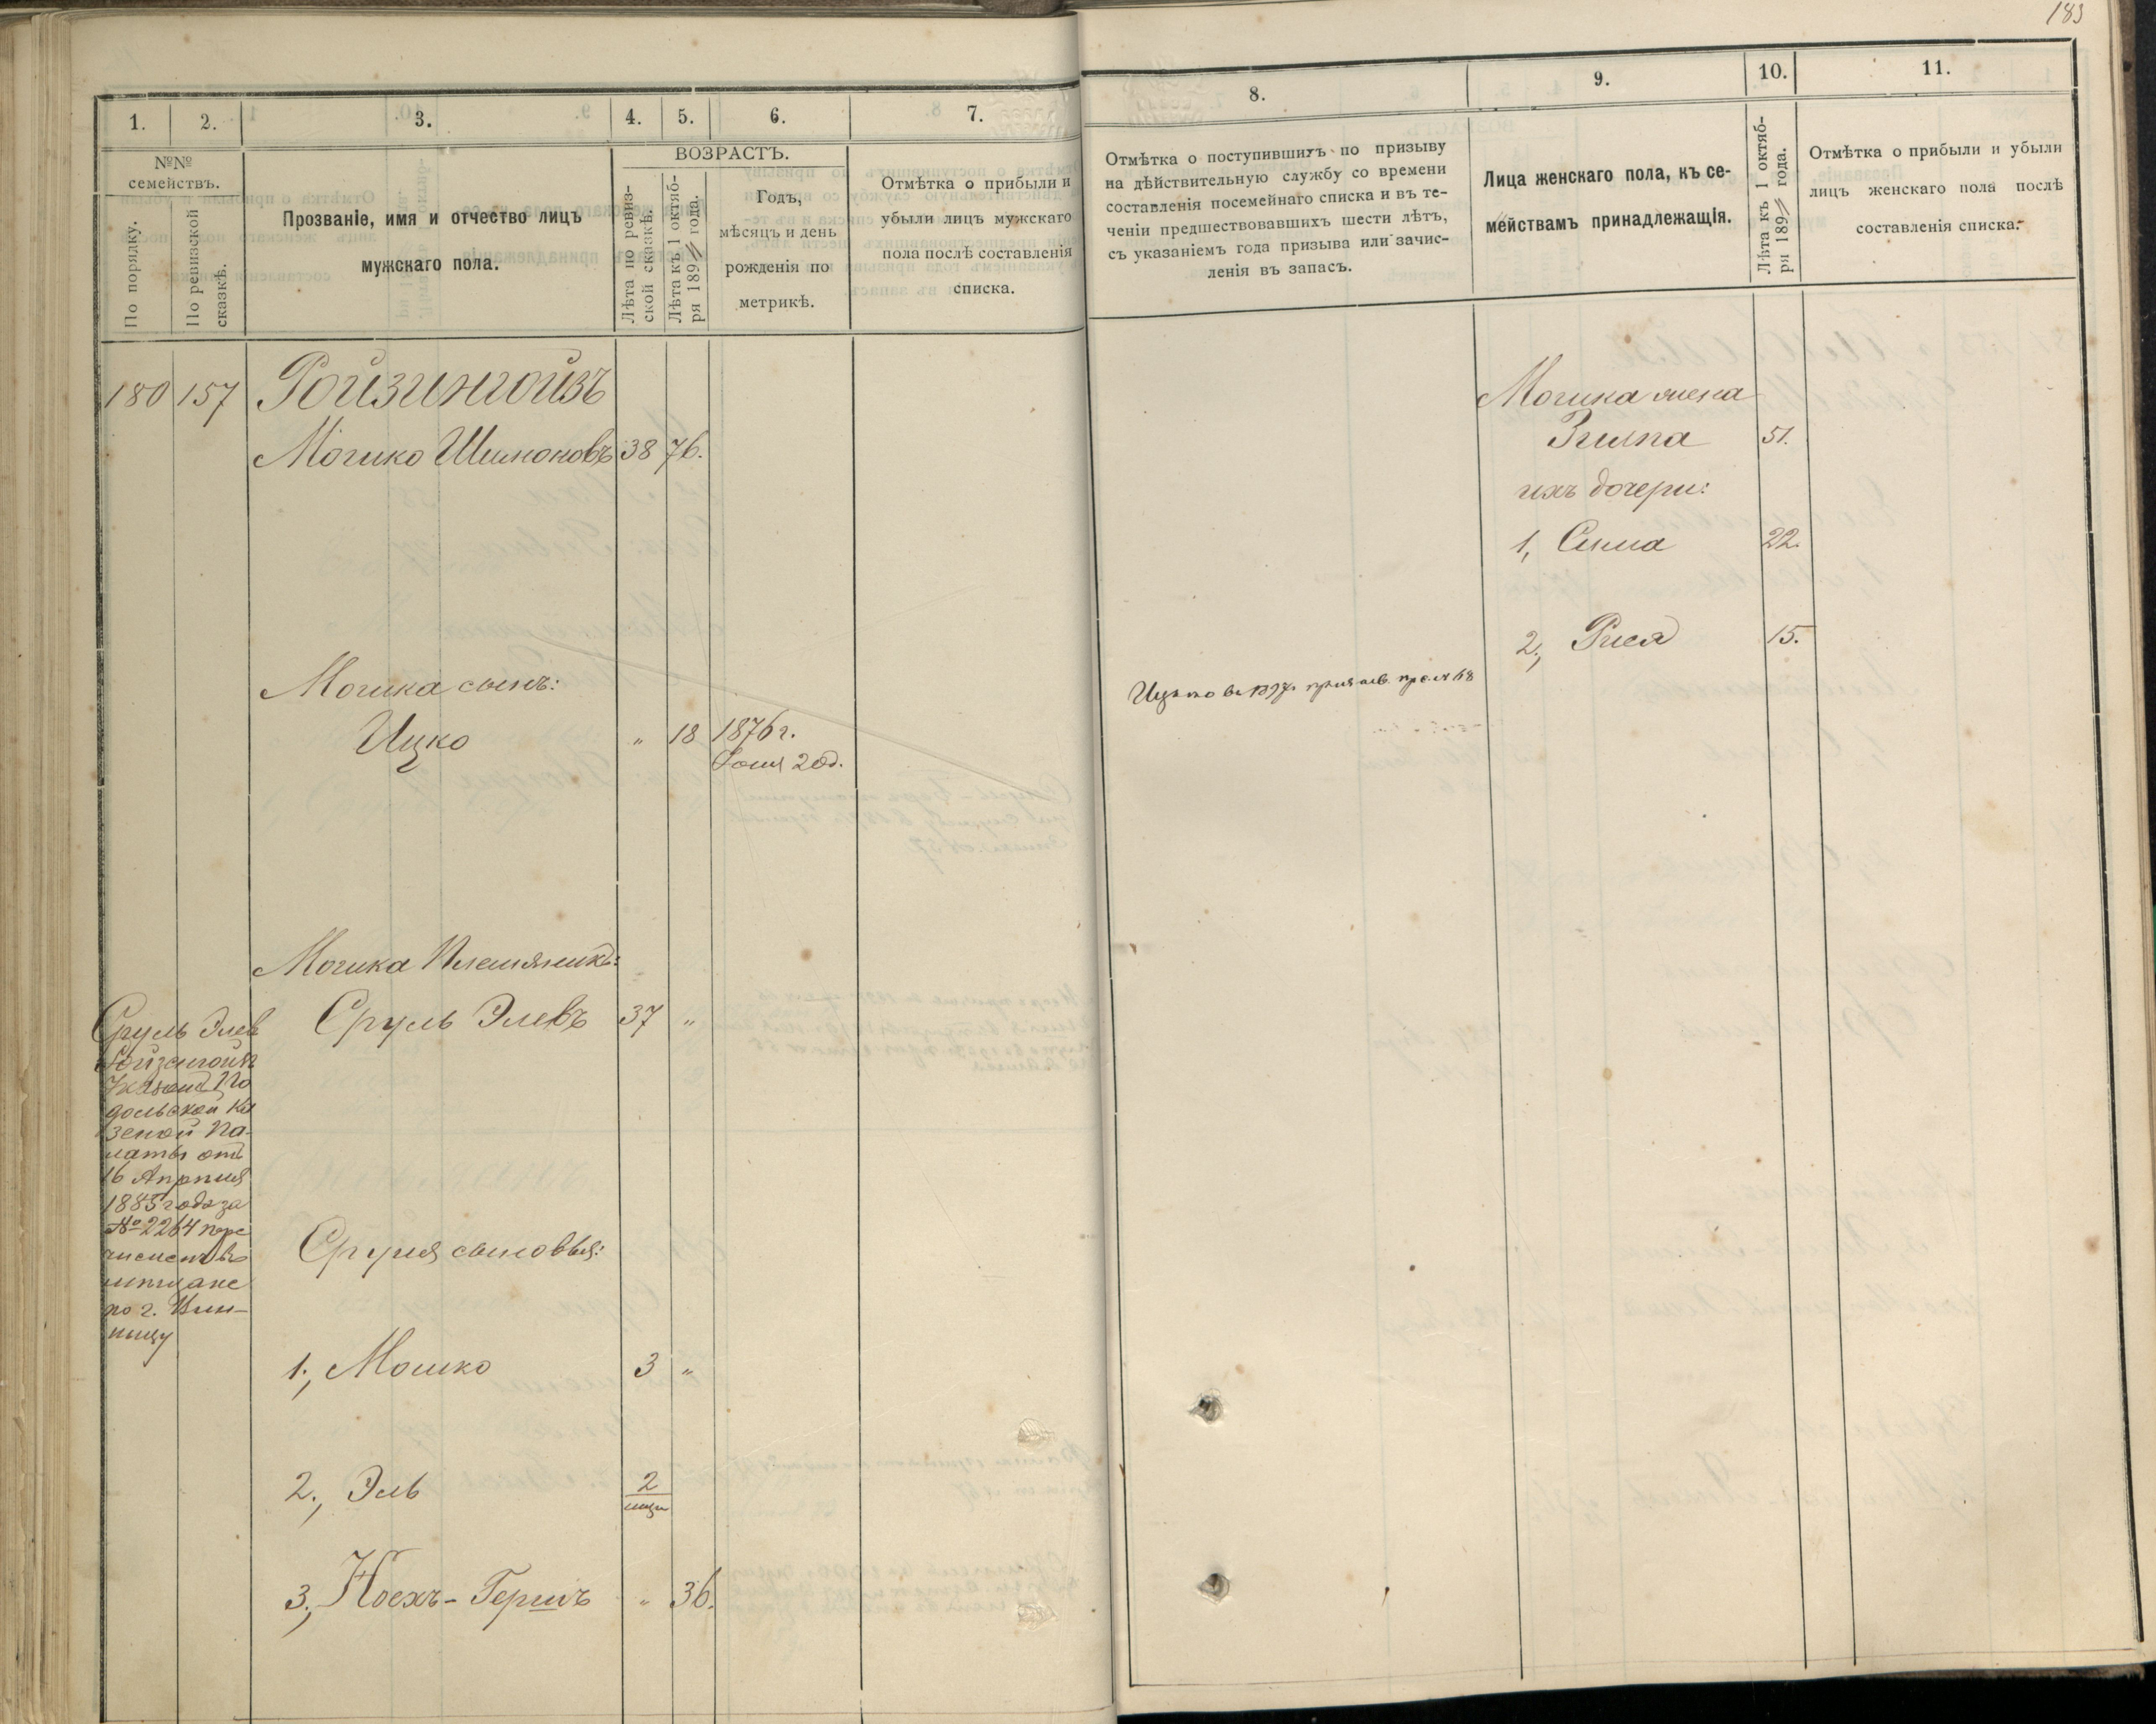 183
1.
2.
3.
4.
5.
6.
7.
№№ семействъ.
По порядку.
По ревизской сказкѣ.
Прозваніе, имя и отчество лицъ
мужскаго пола.
ВОЗРАСТЪ.
Лѣта по ревиз-
ской сказкѣ.
Лѣта къ 1 октяб-
ря 189 года.
Годъ,
мѣсяцъ и день
рожденія по
метрикѣ.
Отмѣтка о прибыли и
убыли лицъ мужскаго
пола послѣ составленія
списка.
8.
9.
10.
11.
Отмѣтка о поступившихъ по призыву
на дѣйствительную службу со времени
составленія посемейнаго списка и въ те-
ченіи предшествовавшихъ шести лѣтъ,
съ указаніемъ года призыва или зачис-
ленія въ запасъ.
Лица женскаго пола, къ се-
мействамъ принадлежащія.
Лѣта къ 1 октяб-
ря 189 года.
Отмѣтка о прибыли и убыли
лицъ женскаго пола послѣ
составленія списка.
180 157 Ройзингойзъ
Мошко Шимоновъ 38 76.
Мошка сынъ:
Ицко " 18 1876 г.
Іюня 20 д.
Мошка Племянникъ:
Сруль Элевъ 37 "
Сруль Элев
Казенной Па-
латы отъ
16 Апрѣля
1885 года за
№ 2264 пере
численъ въ
мѣщане
по г. Вин-
ницу
Сруля сыновья:
1., Мошко 3 "
2., Эль 2
3., Ноехъ-Гершъ " 36.
Мошка жена
Зилпа 51.
ихъ дочери:
1, Сима 22.
2., Рися 15.
Ицько въ 1897